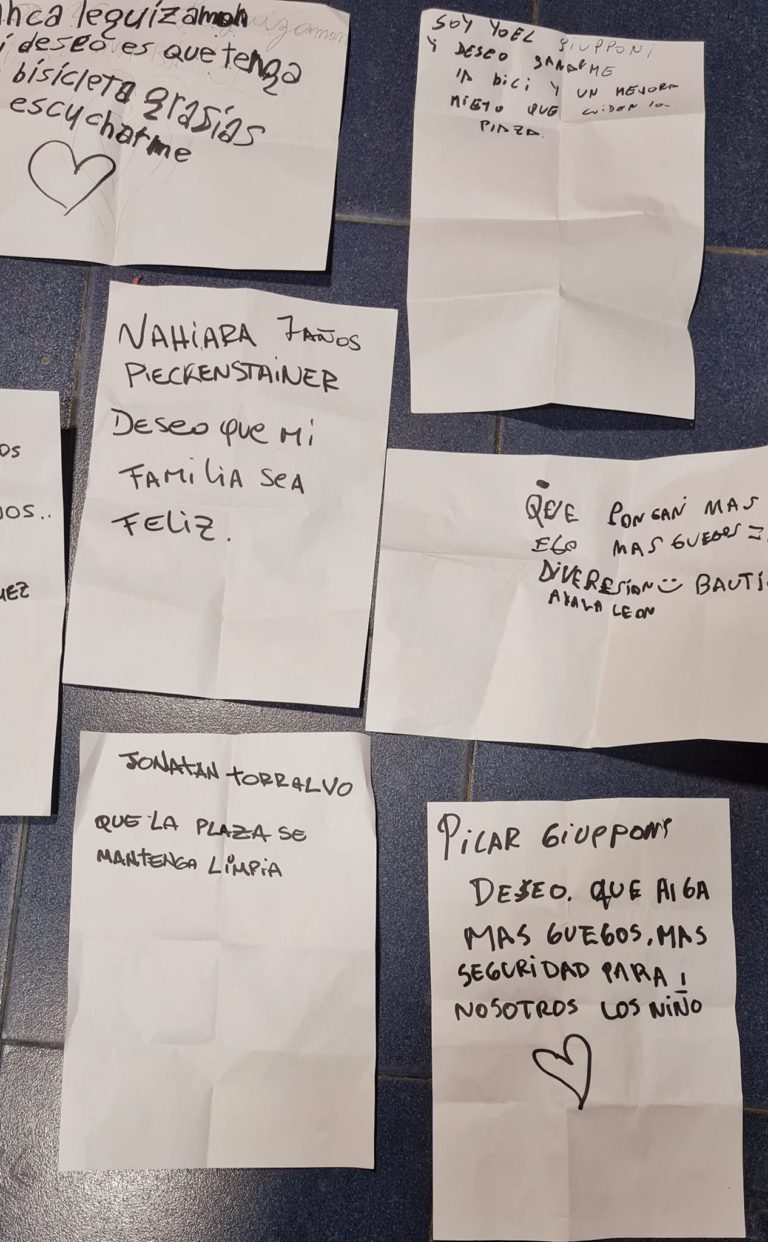 nca leguizamon
i deseo es que tenga
bisicleta grasias
escucharme
SOY YOEL GIUPPONI
Y DESEO GANARME
LA BICI Y UN MEJORA
MIETO QUE CUIDEN LA
PLAZA.
NAHIARA 7 AÑOS
PIECKENSTAINER
DESEO QUE MI
FAMILIA SEA
FELIZ.
OS
JOS..
UEZ
QUE PONGAN MAS
EGO MAS GUEGOS
DIVERSIÓN BAUTI
AYALA LEON
JONATAN TORRALVO
QUE LA PLAZA SE
MANTENGA LIMPIA
PILAR GIUPPONI
DESEO. QUE AIGA
MAS GUEGOS. MAS
SEGURIDAD PARA
NOSOTROS LOS NIÑO